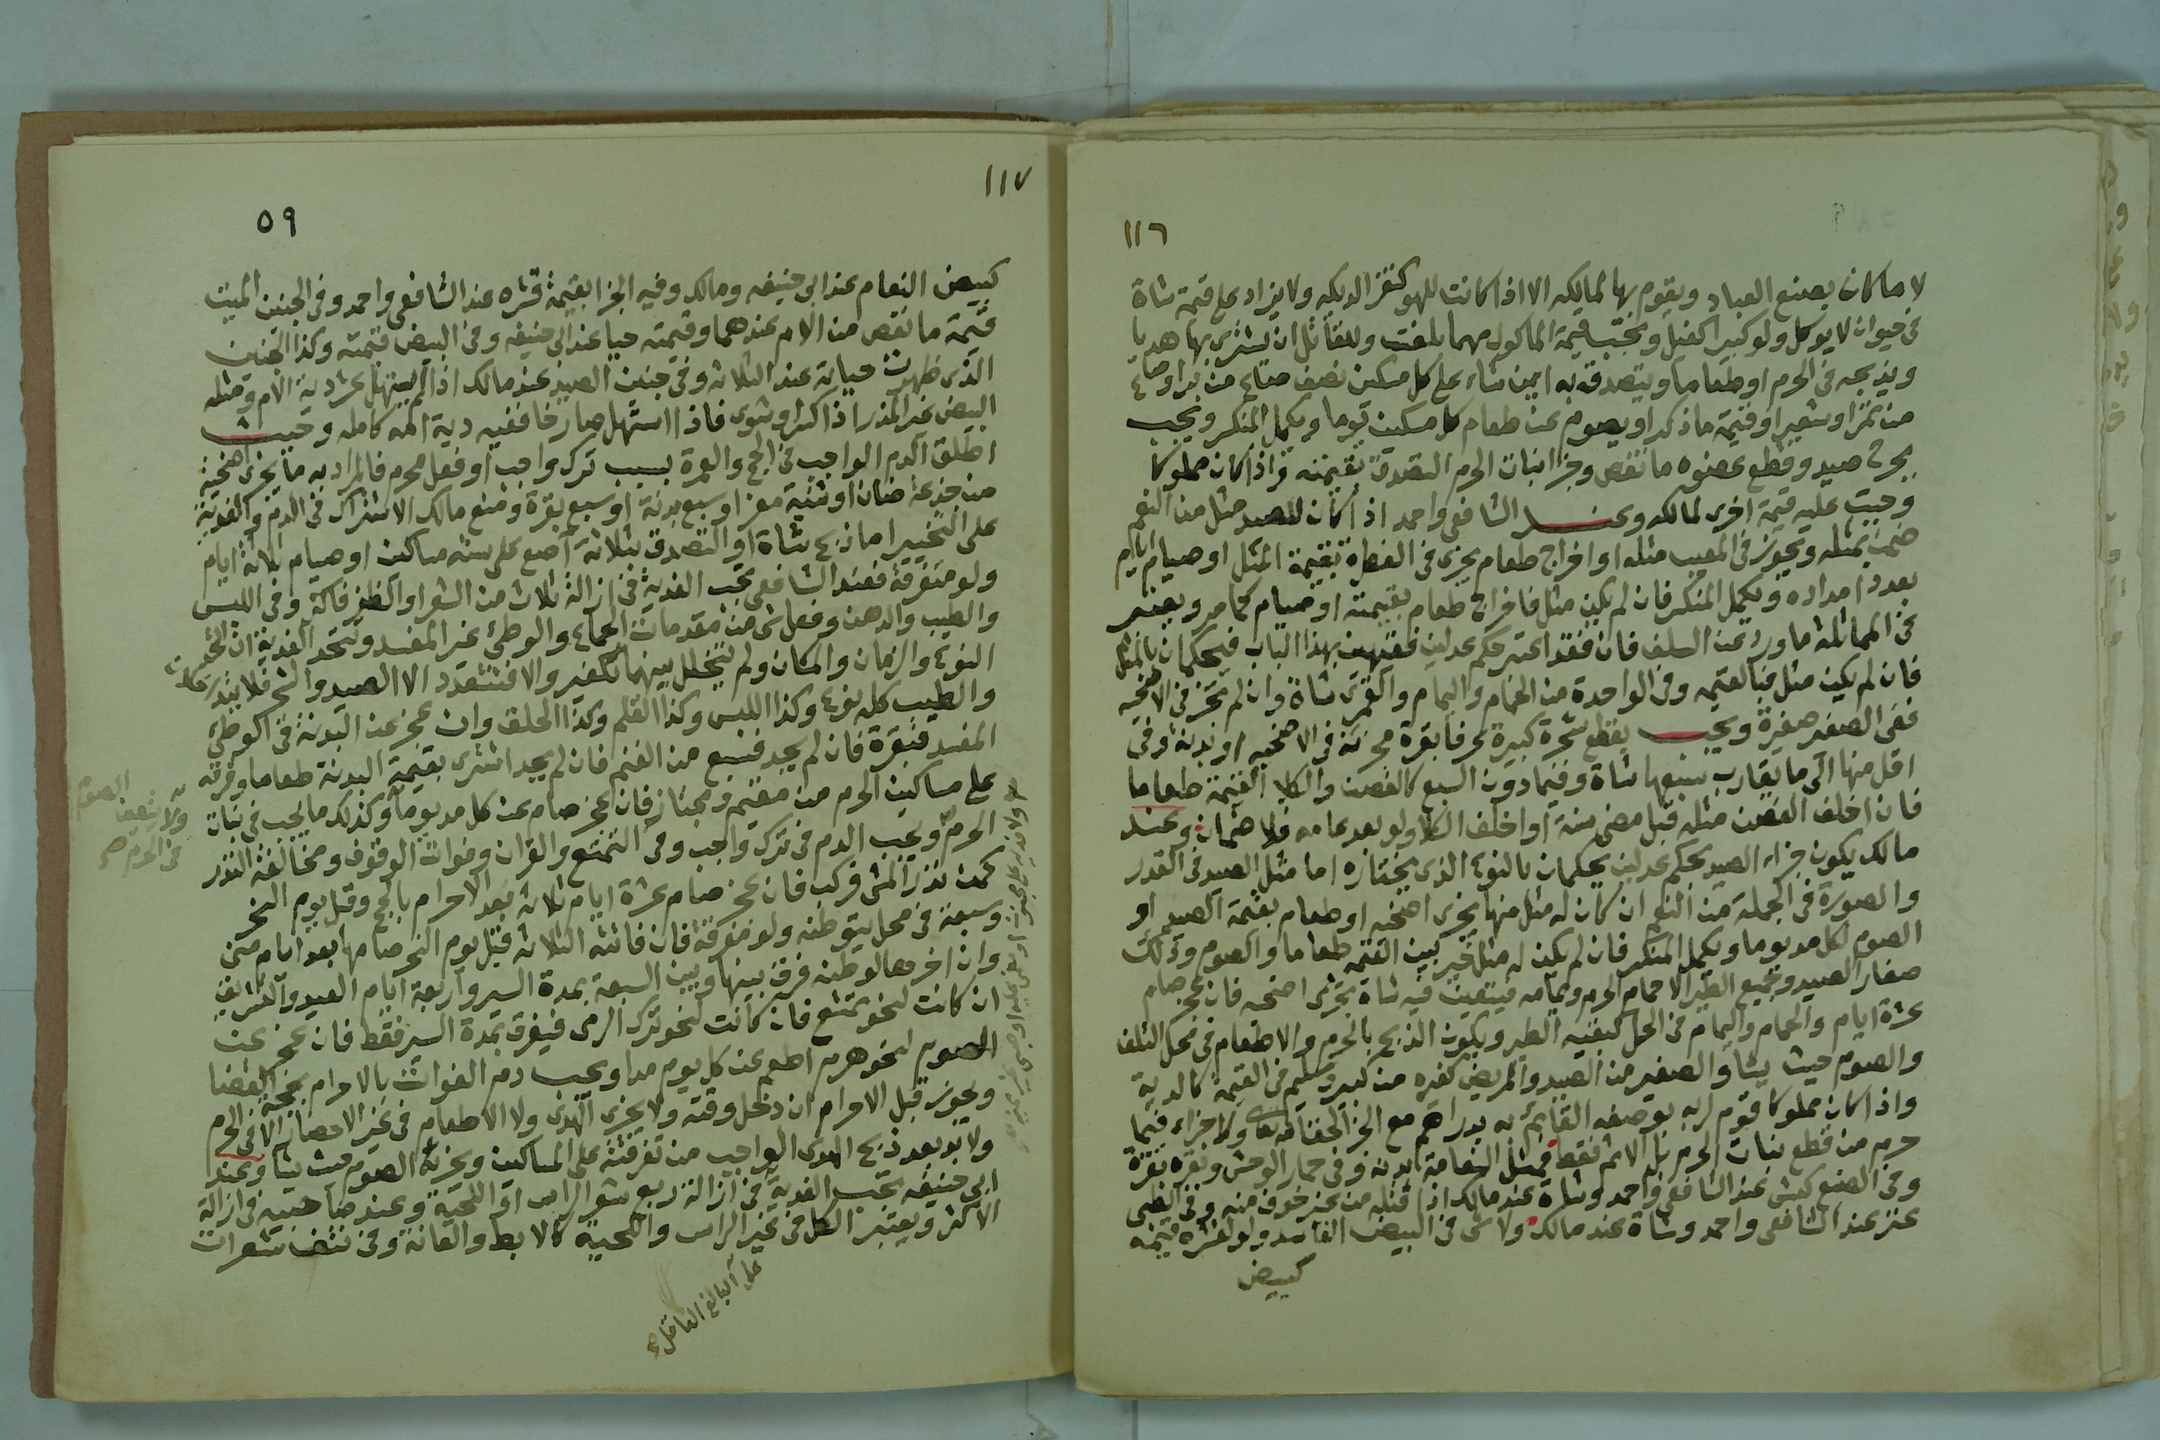 ١١٦
لا ما كان بصنع العباد ويقوم بها لمالكه الا اذا كانت للهو كنقر الديكه ولا يزاد على قيمة شاة
فى حيوان لا يوكل ولو كبيرا كفيل وتجب قيمة الماكول مهما بلغت وللقاتل ان يشترى بها هديا
ويذبحه فى الحرم او طعاما ويتصدق به اين شاء على كل مسكين نصف صاع من بر او صاع
من تمر او شعير او قيمة ما ذكر او يصوم عن طعام كل مسكين يوما ويكمل المنكسر ويجب
بجرح صيد وقطع عضوه ما نقص وجزا نبات الحرم التصدق بقيمته واذا كان مملوكا
وجبت عليه قيمة اخرى لمالكه وعند الشافعى واحمد اذا كان للصيد مثل من النعم
ضمن بمثله ويجوز فى المعيب مثله او اخراج طعام يجزى فى الفطرة بقيمة المثل او صيام ايام
بعدد امداده ويكمل المنكسر فان لم يكن مثل فاخراج طعام بقيمته او صيام كما مر ويعتبر
فى المماثلة ما ورد عن السلف فان فقد اعتبر حكم عدلين فقيهين بهذا الباب فيحكمان بالمثل
فان لم يكن مثل فبالقيمه وفى الواحدة من الحمام واليمام والقمرى شاة وان لم تجز فى الاضحيه
ففى الصغير صغيرة ويجب بقطع شجرة كبيرة بحرم بقرة مجزئة فى الاضحيه او بدنة وفى
اقل منها الى ما يقارب سبعها شاة وفيما دون السبع كالغصن والكلا القيمة طعاما
فان اخلف الغصن مثله قبل مضى سنة او اخلف الكلا ولو بعد عامه فلا ضمان وعند
مالك يكون جزاء الصيد بحكم عدلين يحكمان بالنوع الذى يختاره اما مثل الصيد فى القدر
والصورة فى الجملة من النعم ان كان له مثل منها يجزى اضحيه او طعام بقيمة الصيد او
الصوم لكل مد يوما ويكمل المنكسر فان لم يكن له مثل خير بين القيمه طعاما والصوم وذلك
صغار الصيد وجميع الطير الا حمام الحرم ويمامه فيتعين فيه شاة تجزى اضحيه فان عجز صام
عشرة ايام والحمام واليمام فى الحل كبقيه الطير ويكون الذبح بالحرم والاطعام فى محل التلف
والصوم حيث يشا والصغير من الصيد والمريض كغيره من كبير وسليم فى القيمة كالدية
واذا كان مملوكا قوم لربه بوصفه القائم به بدراهم مع الجزا لحق الله تعالى ولا جزاء فيما
حرم من قطع نبات الحرم بل الاثم فقط فمثل النعامة بدنة وفى حمار الوحش وبقره بقرة
وفى الضبع كبش عند الشافعى واحمد وشاة عند مالك اذا قتله من غير خوف منه وفى الظبى
عنز عند الشافعى واحمد وشاة عند مالك ولا شى فى البيض الفاسد ولو لقشره قيمه
كبيض
١١٧
٥٩
كبيض النعام عند ابى حنيفه ومالك وفيه الجزا بقيمة قشره عند الشافعى واحمد وفى الجنين الميت
قيمة ما نقص من الام عندهما وقيمته حيا عند ابى حنيفه وفى البيض قيمته وكذا الجنين
الذى ظهرت حياته عند الثلاثه وفى جنين الصيد عند مالك اذا لم يستهل عشر دية الام ومثله
البيض غير المذر اذا كسر او شوى فاذا استهل صارخا ففيه دية امه كاملة وحيث
اطلق الدم الواجب فى الحج والعمرة بسبب ترك واجب او فعل محرم فالمراد به ما يجزى اضحية
من جذعة ضان او ثنية معز او سبع بدنة او سبع بقرة ومنع مالك الاشتراك فى الدم والفدية
على التخيير اما ذبح شاة او التصدق بثلاثة آصع على سته مساكين او صيام ثلاثة ايام
ولو متفرقة فعند الشافعى تجب الفدية فى ازالة ثلاث من الشعر او الظفر فاكثر وفى اللبس
والطيب والدهن وفعل شى من مقدمات الجماع والوطئ غير المفسد وتتحد الفدية ان اتحد
النوع والزمان والمكان ولم يتخلل بينهما تكفير والا فتتعدد الا الصيد والشجر فلا يتداخلان
والطيب كله نوع وكذا اللبس وكذا القلم وكذا الحلق وان عجز عن البدنة فى الوطئ
المفسد فبقرة فان لم يجد فسبع من الغنم فان لم يجد اشترى بقيمة البدنة طعاما وفرقه
على مساكين الحرم من مقيم ومجتاز فان عجز صام عن كل مد يوما وكذلك ما يجب فى نبات
الحرم ويجب الدم فى ترك واجب وفى التمتع والقران وفوات الوقوف ومخالفة النذر
كمن نذر المشى فركب فان عجز صام عشرة ايام ثلاثة بعد الاحرام بالحج وقبل يوم النحر
وسبعة فى محل يتوطنه ولو متفرقة فان فاتته الثلاثه قبل يوم النحر صامها بعد ايام منى
وان اخرها لوطنه فرق بينها وبين السبعة بمدة السير واربعة ايام العيد والتشريق
ان كانت لنحو تمتع فان كانت لنحو ترك الرمى فيفرق بمدة السير فقط فان عجز عن
الصوم لنحو هرم اطعم عن كل يوم مدا ويجب دم الفوات بالاحرام بحجة القضا
ويجوز قبل الاحرام ان دخل وقته ولا يجزى الهدى ولا الاطعام فى غير الاحصار الا فى الحرم
ولا بد بعد ذبح الهدى الواجب من تفرقته على المساكين ويجزئه الصوم حيث يشا وعند
ابى حنيفه تجب الفدية فى ازالة ربع شعر الراس او اللحية وعند صاحبيه فى ازالة
الاكثر ويعتبر الكل فى غير الراس واللحية كالابط والعانة وفى نتف شعرات
ولا يتعين الصوم
فى الحرم صح
على البالغ العاقل صح